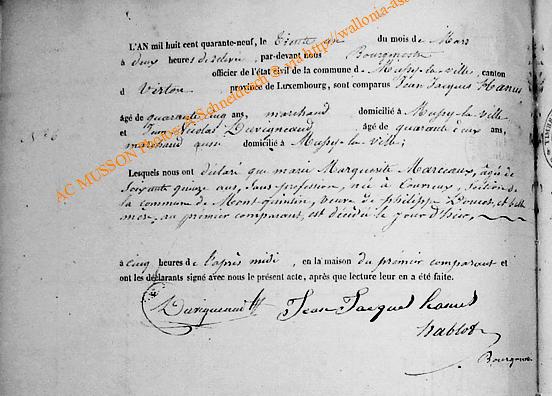 L'AN mil huit cent quarante-neuf, le Trente un du mois de Mars
à deux heures de relevée, par-devant nous Bourgmestre
officier de l'état civil de la commune de Mussy-la-ville, canton
d Virton, province de Luxembourg, sont comparus Jean Jacques Hanus
âgé de quarante cinq ans, marchand domicilié à Mussy-la-ville
et Jean Nicolas Duvigneaud, âgé de quarante deux ans,
marchand aussi domicilié à Mussy-la-ville;
Lesquels nous ont déclaré que marie Marguerite Marceaux, âgée de
Soixante quinze ans, Sans profession, née à Couvreux, Section de
la commune de Mont-quintin, veuve de philippe et belle
mère au premier comparant, est décédée le jour d'hier,
à cinq heures de l'après midi, en la maison du premier comparant et
ont les déclarants signé avec nous le présent acte, après que lecture leur en a été faite.
Jean Jacques hanus
Bourgmes
AC MUSSON Photos G Schneidesch © via http://wallonia-as